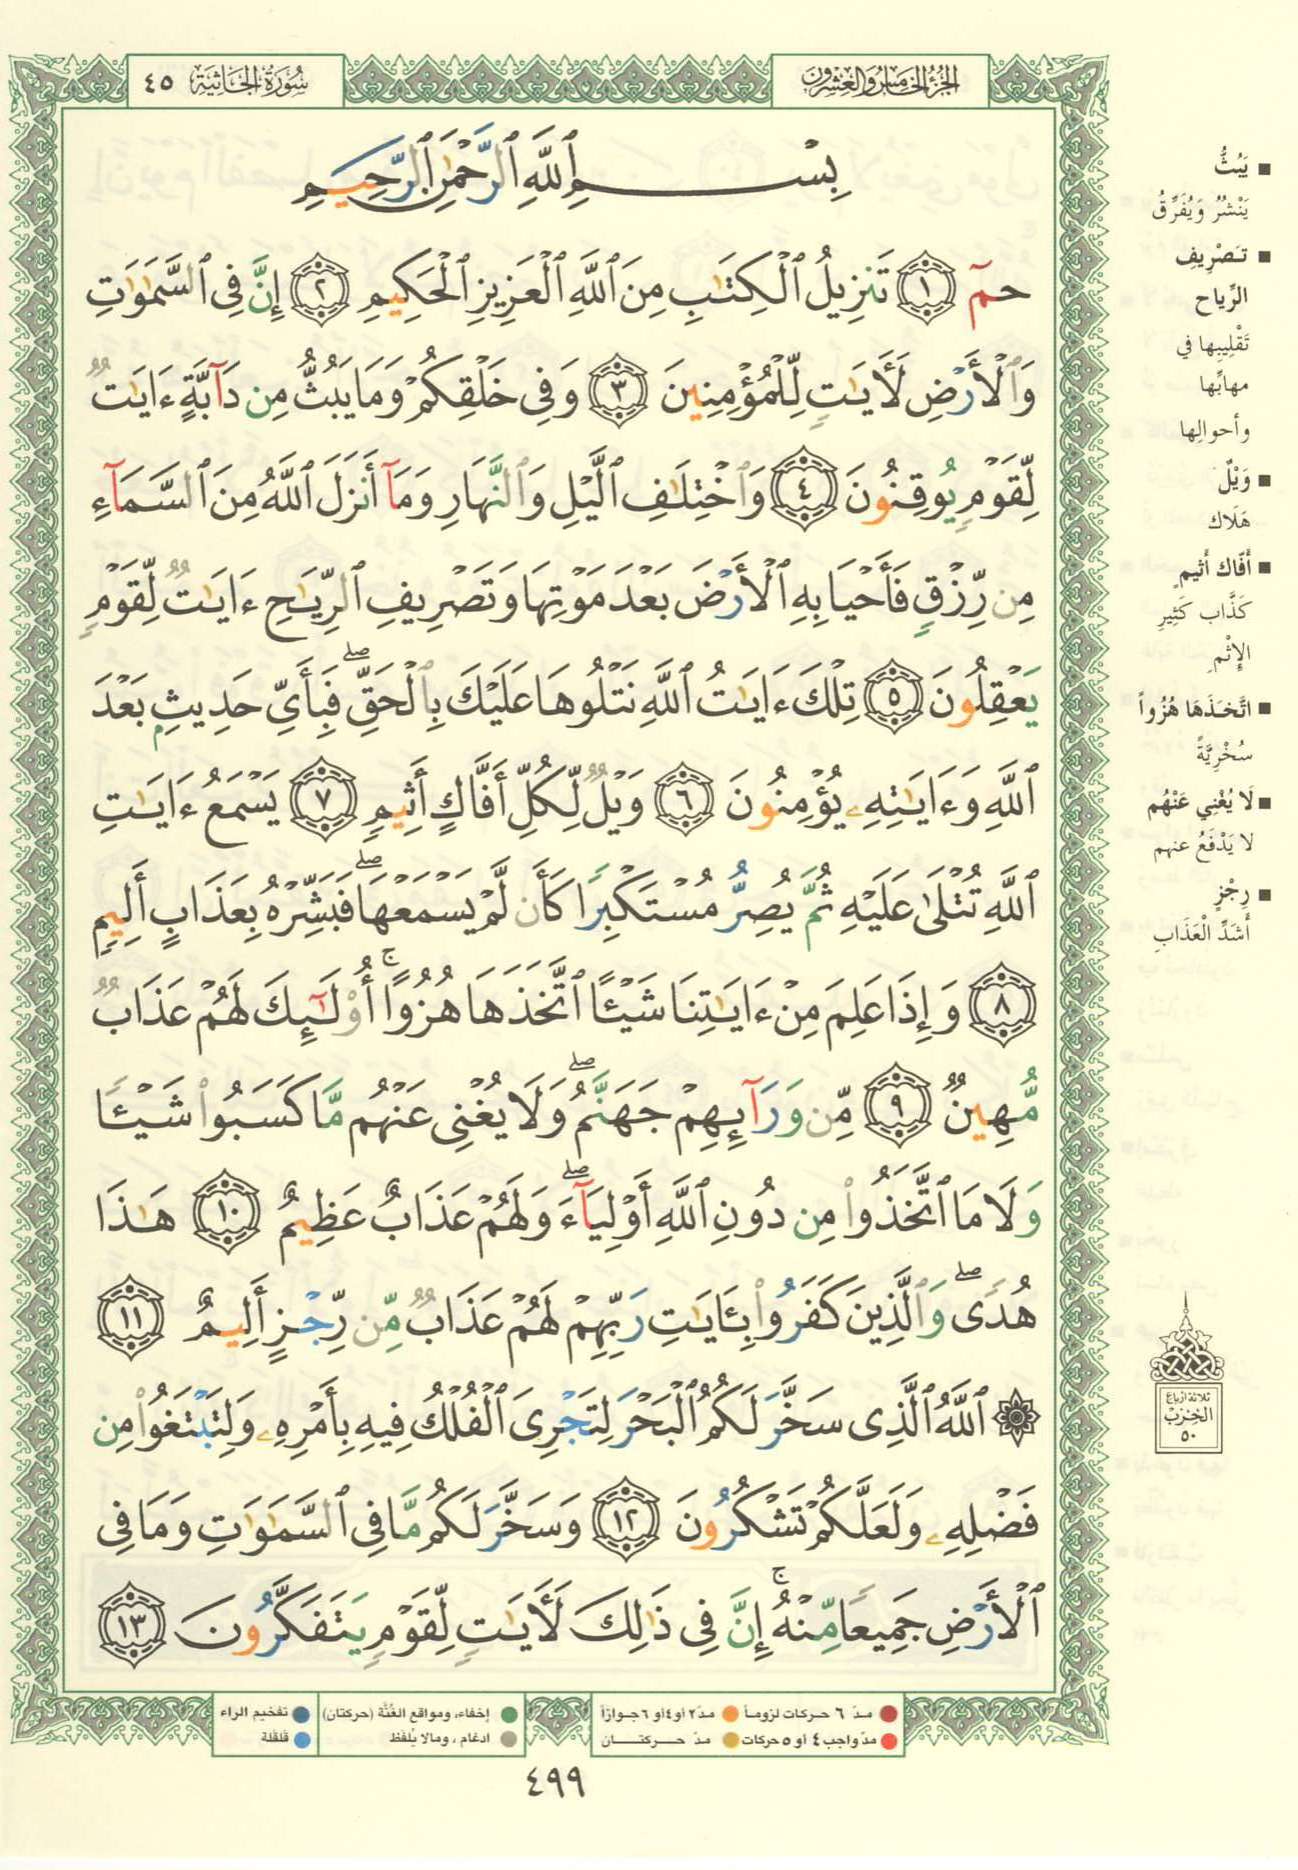 الجزء الخامس والعشرون
سورة الجاثية ٤٥
بِسْمِ ٱللَّهِ ٱلرَّحْمَٰنِ ٱلرَّحِيمِ
حمٓ ١ تَنزِيلُ ٱلْكِتَٰبِ مِنَ ٱللَّهِ ٱلْعَزِيزِ ٱلْحَكِيمِ ٢ إِنَّ فِى ٱلسَّمَٰوَٰتِ
وَٱلْأَرْضِ لَءَايَٰتٍ لِّلْمُؤْمِنِينَ ٣ وَفِى خَلْقِكُمْ وَمَا يَبُثُّ مِن دَآبَّةٍ ءَايَٰتٌ
لِّقَوْمٍ يُوقِنُونَ ٤ وَٱخْتِلَٰفِ ٱلَّيْلِ وَٱلنَّهَارِ وَمَآ أَنزَلَ ٱللَّهُ مِنَ ٱلسَّمَآءِ
مِن رِّزْقٍ فَأَحْيَا بِهِ ٱلْأَرْضَ بَعْدَ مَوْتِهَا وَتَصْرِيفِ ٱلرِّيَٰحِ ءَايَٰتٌ لِّقَوْمٍ
يَعْقِلُونَ ٥ تِلْكَ ءَايَٰتُ ٱللَّهِ نَتْلُوهَا عَلَيْكَ بِٱلْحَقِّ ۖ فَبِأَىِّ حَدِيثٍۭ بَعْدَ
ٱللَّهِ وَءَايَٰتِهِۦ يُؤْمِنُونَ ٦ وَيْلٌ لِّكُلِّ أَفَّاكٍ أَثِيمٍ ٧ يَسْمَعُ ءَايَٰتِ
ٱللَّهِ تُتْلَىٰ عَلَيْهِ ثُمَّ يُصِرُّ مُسْتَكْبِرًا كَأَن لَّمْ يَسْمَعْهَا ۖ فَبَشِّرْهُ بِعَذَابٍ أَلِيمٍ
٨ وَإِذَا عَلِمَ مِنْ ءَايَٰتِنَا شَيْـًٔا ٱتَّخَذَهَا هُزُوًا ۚ أُو۟لَٰٓئِكَ لَهُمْ عَذَابٌ
مُّهِينٌ ٩ مِّن وَرَآئِهِمْ جَهَنَّمُ ۖ وَلَا يُغْنِى عَنْهُم مَّا كَسَبُوا۟ شَيْـًٔا
وَلَا مَا ٱتَّخَذُوا۟ مِن دُونِ ٱللَّهِ أَوْلِيَآءَ ۖ وَلَهُمْ عَذَابٌ عَظِيمٌ ١٠ هَٰذَا
هُدًى ۖ وَٱلَّذِينَ كَفَرُوا۟ بِـَٔايَٰتِ رَبِّهِمْ لَهُمْ عَذَابٌ مِّن رِّجْزٍ أَلِيمٌ ١١
۞ ٱللَّهُ ٱلَّذِى سَخَّرَ لَكُمُ ٱلْبَحْرَ لِتَجْرِىَ ٱلْفُلْكُ فِيهِ بِأَمْرِهِۦ وَلِتَبْتَغُوا۟ مِن
فَضْلِهِۦ وَلَعَلَّكُمْ تَشْكُرُونَ ١٢ وَسَخَّرَ لَكُم مَّا فِى ٱلسَّمَٰوَٰتِ وَمَا فِى
ٱلْأَرْضِ جَمِيعًا مِّنْهُ ۚ إِنَّ فِى ذَٰلِكَ لَءَايَٰتٍ لِّقَوْمٍ يَتَفَكَّرُونَ ١٣
■ يَبُثُّ
يَنْشُرُ وَيُفَرِّقُ
■ تَصْرِيفِ
الرِّياحِ
تَقْلِيبِها في
مهابِّها
وأحوالِها
■ وَيْلٌ
هَلَاك
■ أَفَّاك أَثيمٍ
كَذَّاب كَثِيرِ
الإِثْمِ
■ اتَّخَذَهَا هُزُواً
سُخْرِيَّةً
■ لَا يُغْنِي عَنْهُم
لا يَدْفَعُ عنهم
■ رِجْزٍ
أَشَدِّ الْعَذَابِ
ثلاثة أرباع
الحزب
٥٠
مدّ ٦ حركات لزوماً مدّ ٢ أو ٤ أو ٦ جوازاً
مدّ واجب ٤ أو ٥ حركات مدّ حركتان
إخفاء، ومواقع الغُنَّة (حركتان) تفخيم الراء
ادغام، ومالا يُلفظ قلقلة
٤٩٩